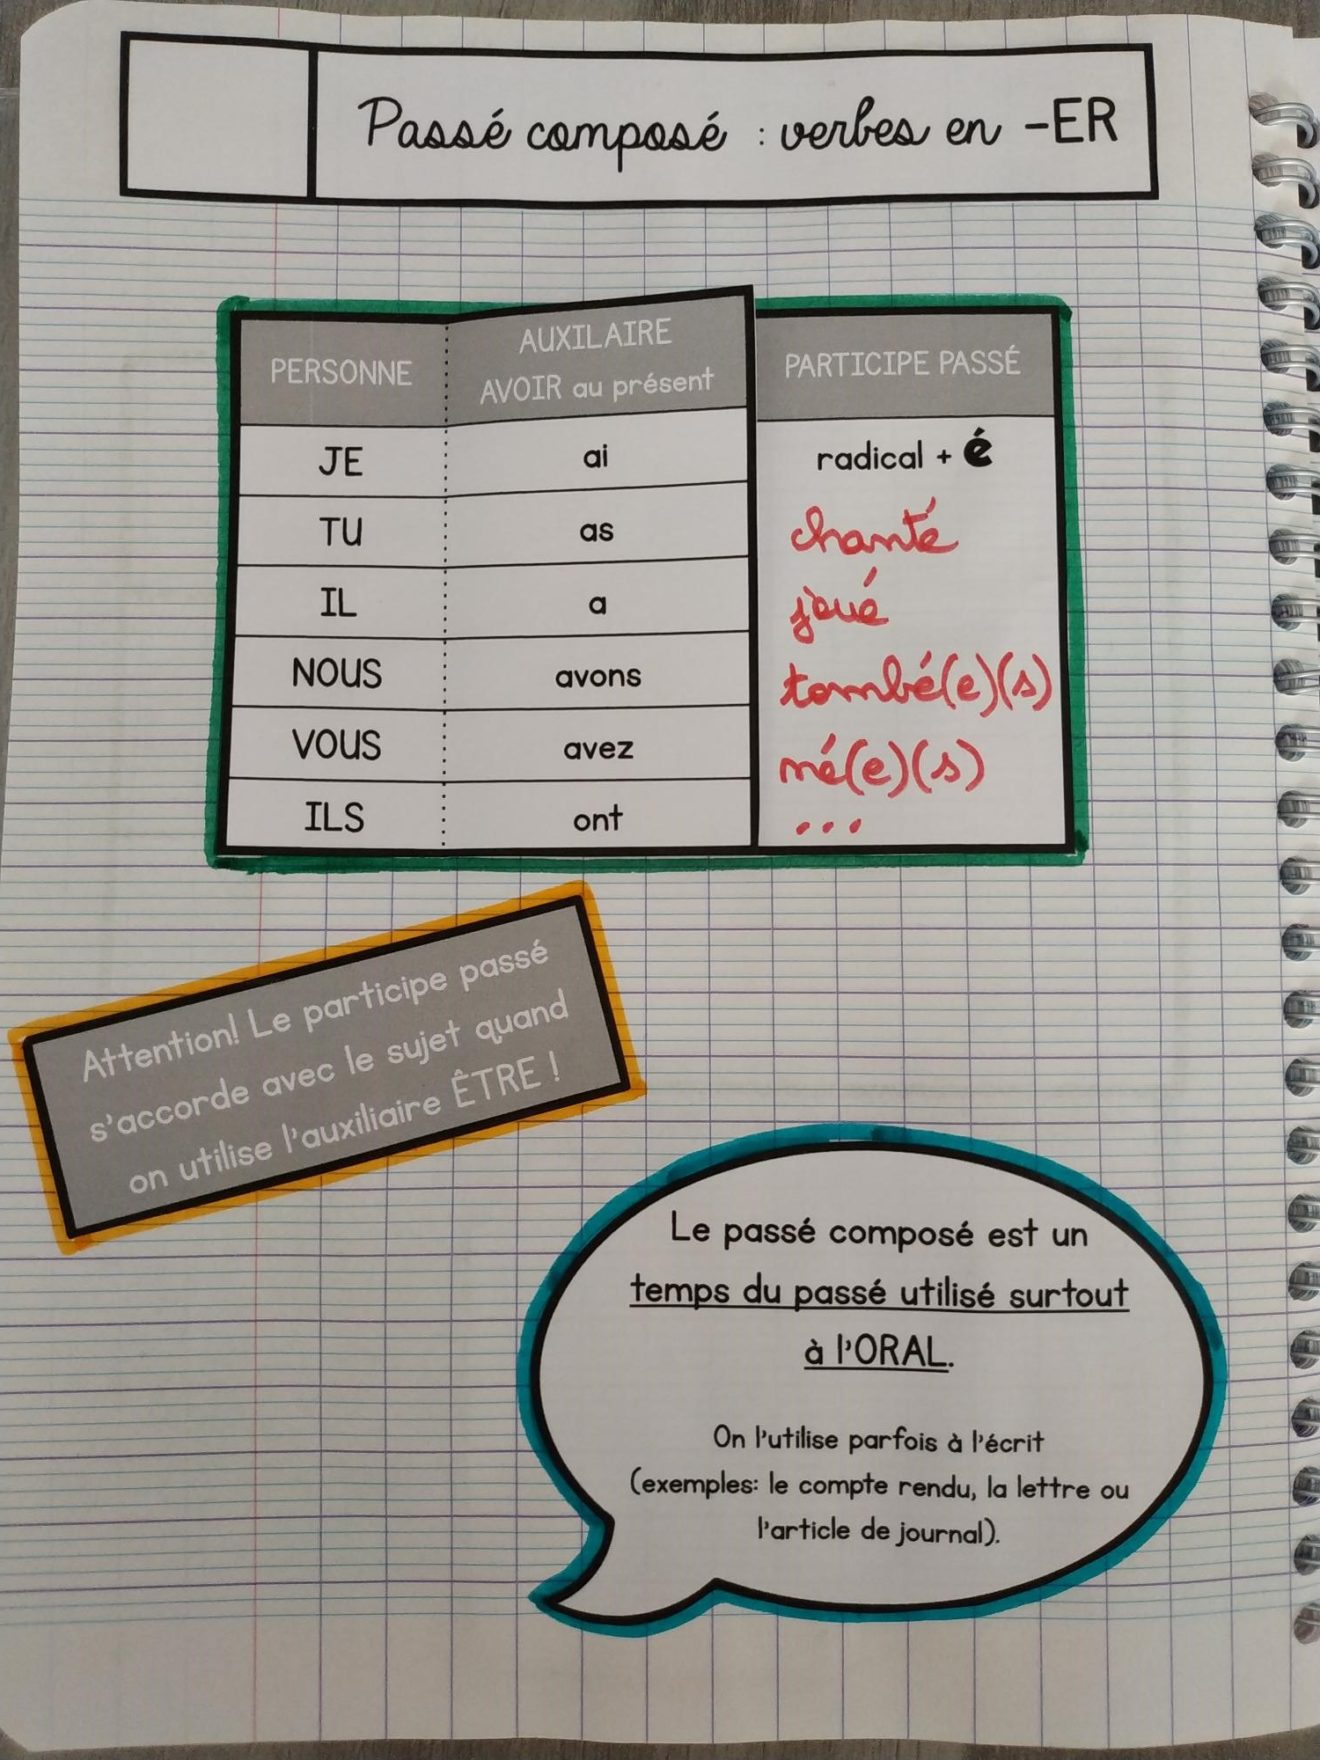 Passé composé : verbes en -ER
PERSONNE
AUXILAIRE
AVOIR au présent
PARTICIPE PASSÉ
JE ai radical + é
TU as chanté
IL a joué
NOUS avons tombé(e)(s)
VOUS avez mé(e)(s)
ILS ont ...
Attention! Le participe passé
s'accorde avec le sujet quand
on utilise l'auxiliaire ÊTRE !
Le passé composé est un
temps du passé utilisé surtout
à l'ORAL.
On l'utilise parfois à l'écrit
(exemples: le compte rendu, la lettre ou
l'article de journal).